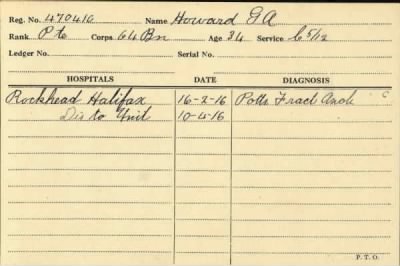 Reg. No. 470410 Name Howard G A
Rank Pte Corps 64 Bn Age 34 Service 6 5/12
Ledger No. Serial No.
HOSPITALS DATE DIAGNOSIS
Rockhead Halifax 16-2-16 Potts Fract Ancle C
Dis to Unit 10-4-16
P. T. O.